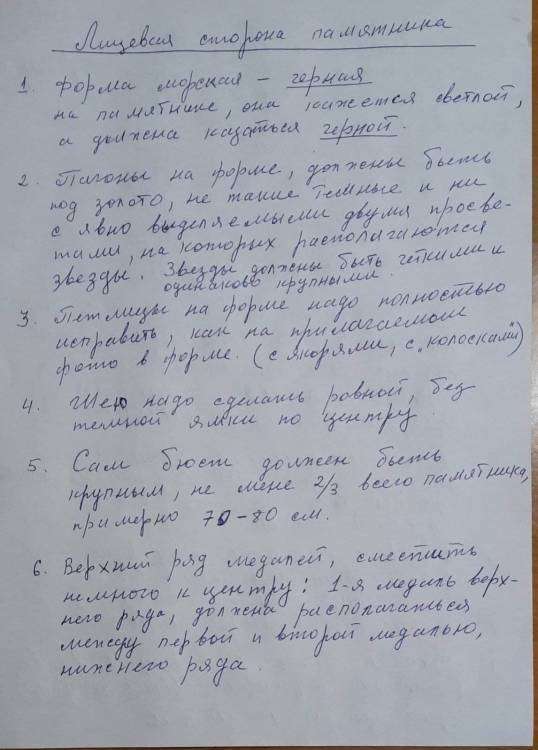 Лицевая сторона памятника
1. Форма морская – черная
на памятнике, она кажется светлой,
а должна казаться черной.
2. Пагоны на форме, должны быть
под золото, не такие темные и ни
с явно выделяемыми двумя просве-
тами, на которых располагаются
звезды. Звезды должны быть четкими и
одинаково крупными.
3. Петлицы на форме надо полностью
исправить, как на прилагаемом
фото в форме. (с якорями, с „колосками")
4. Шею надо сделать ровной, без
темной ямки по центру.
5. Сам бюст должен быть
крупным, не мене 2/3 всего памятника,
примерно 70-80 см.
6. Верхний ряд медалей, сместить
немного к центру: 1-я медаль верх-
него ряда, должна располагаться
между первой и второй медалью,
нижнего ряда.